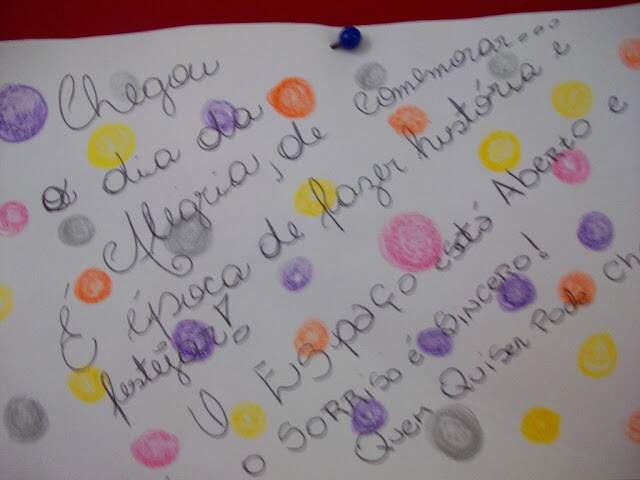 Chegou
o dia da
Alegria, de comemorar...
É época de fazer história e
festejar!
O Espaço está Aberto e
o SORRISO é SINCERO!
Quem Quiser Pode Ch